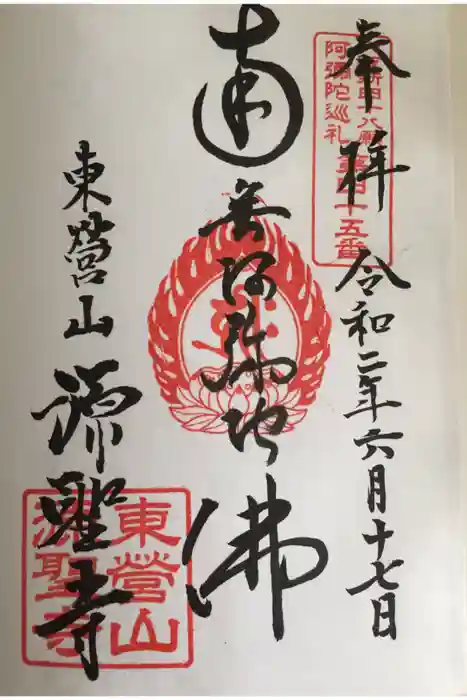 奉拝 令和二年六月十七日
阿彌陀巡礼
第四十五番
南無阿弥陀佛
東營山 源聖寺
東營山
源聖寺